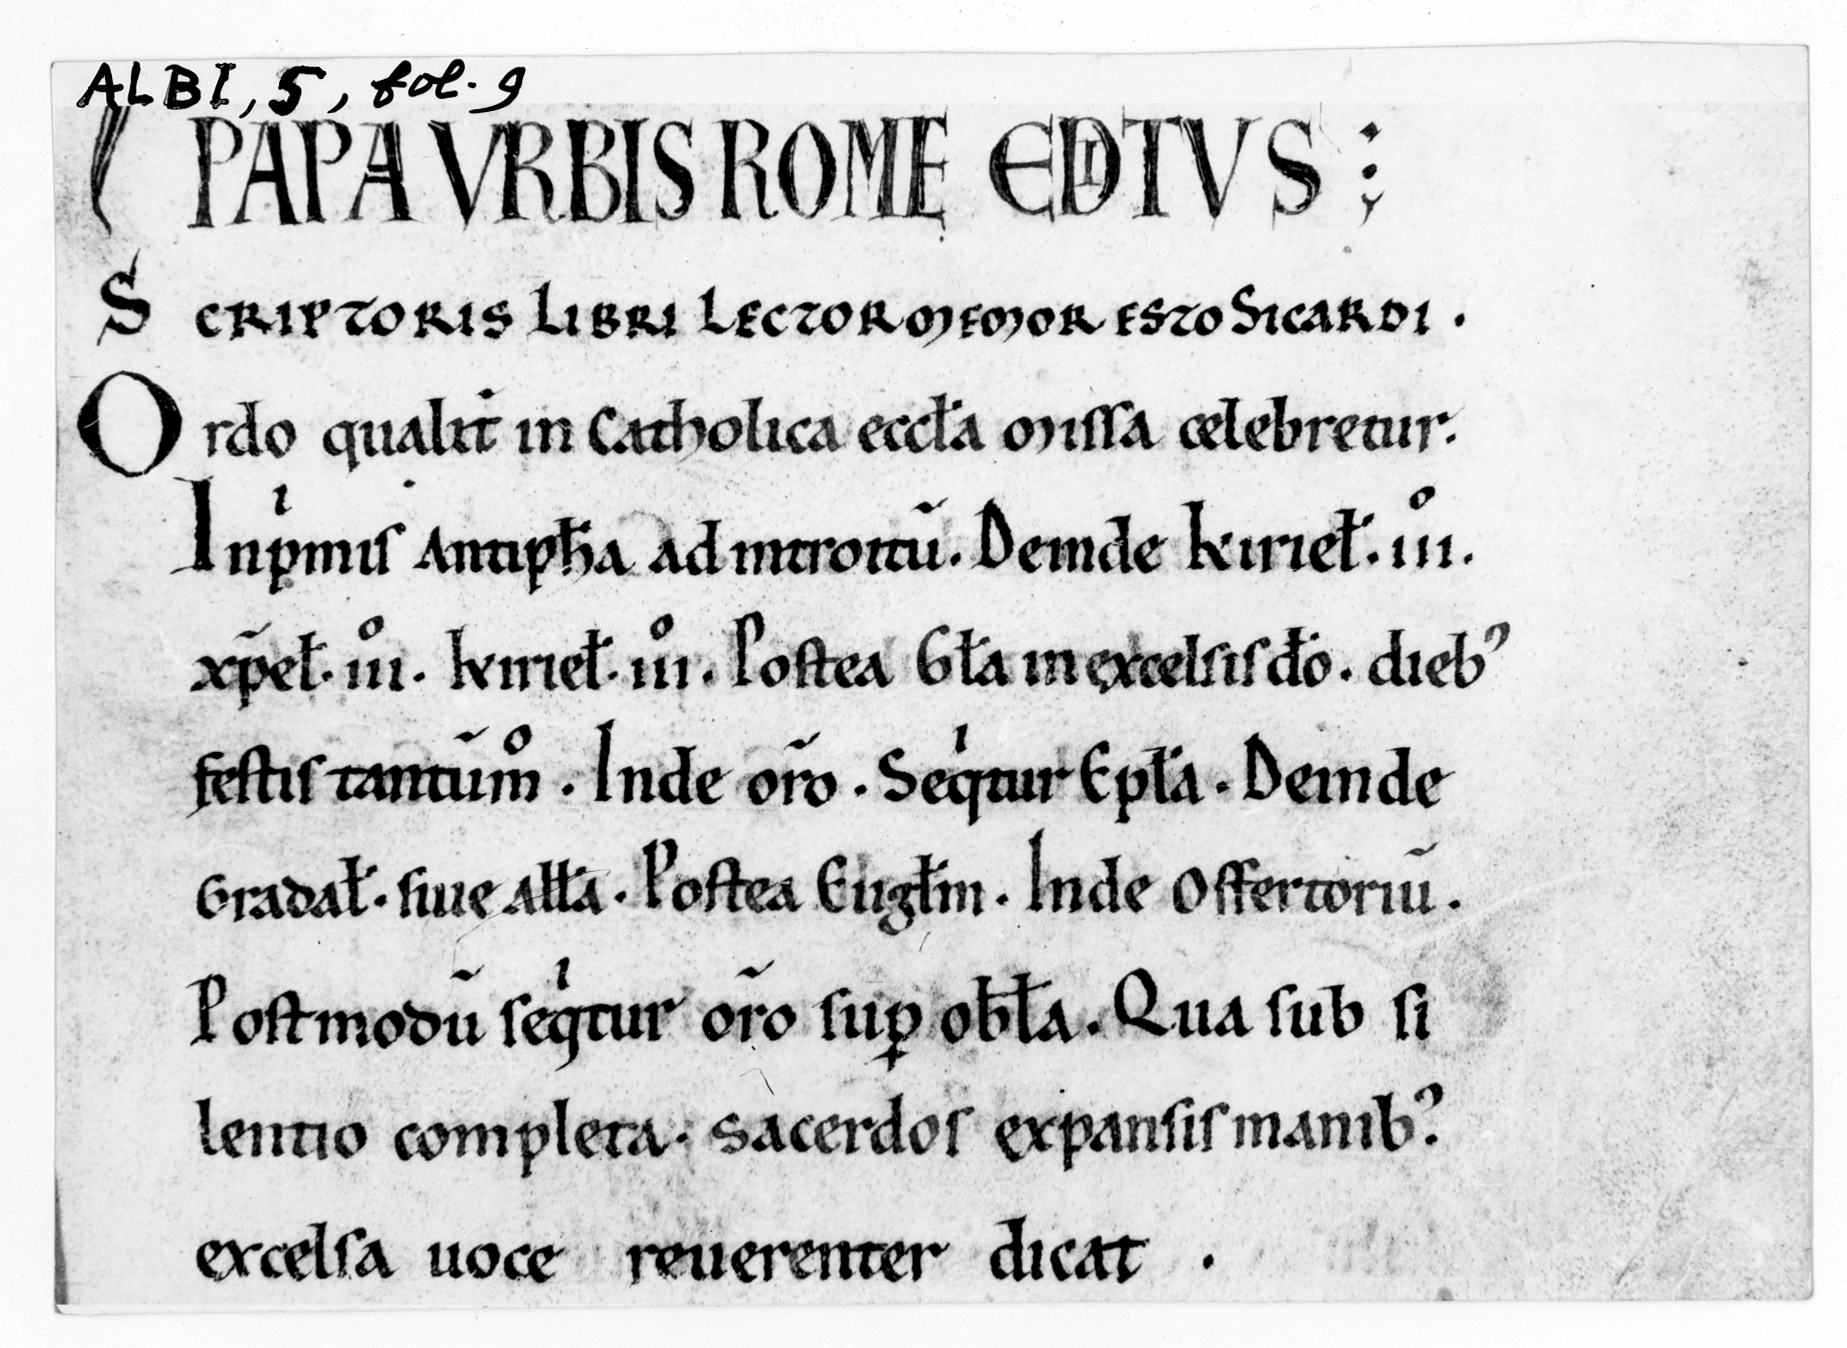 ALBI, 5, fol. 9
PAPA VRBIS ROME EDITVS :
SCRIPTORIS LIBRI LECTOR MEMOR ESTO SICARDI .
Ordo qualit̄ in Catholica eccl̄a missa celebretur.
Inpͥmis Antiph̄a ad introitū. Deinde kiriel̄. iiͦi.
xp̄el̄. iiͦi. kiriel̄. iiͦi. Postea Gl̄a in excelsis dō. dieb⁹
festis tantūmͦ. Inde or̄o. Seqͥtur Epl̄a. Deinde
Gradal̄. siue all̄a. Postea Eūgl̄m. Inde Offertoriū.
Postmodū seqͥtur or̄o suꝑ obl̄a. Qua sub si
lentio completa. Sacerdos expansis manib⁹.
excelsa uoce reuerenter dicat .